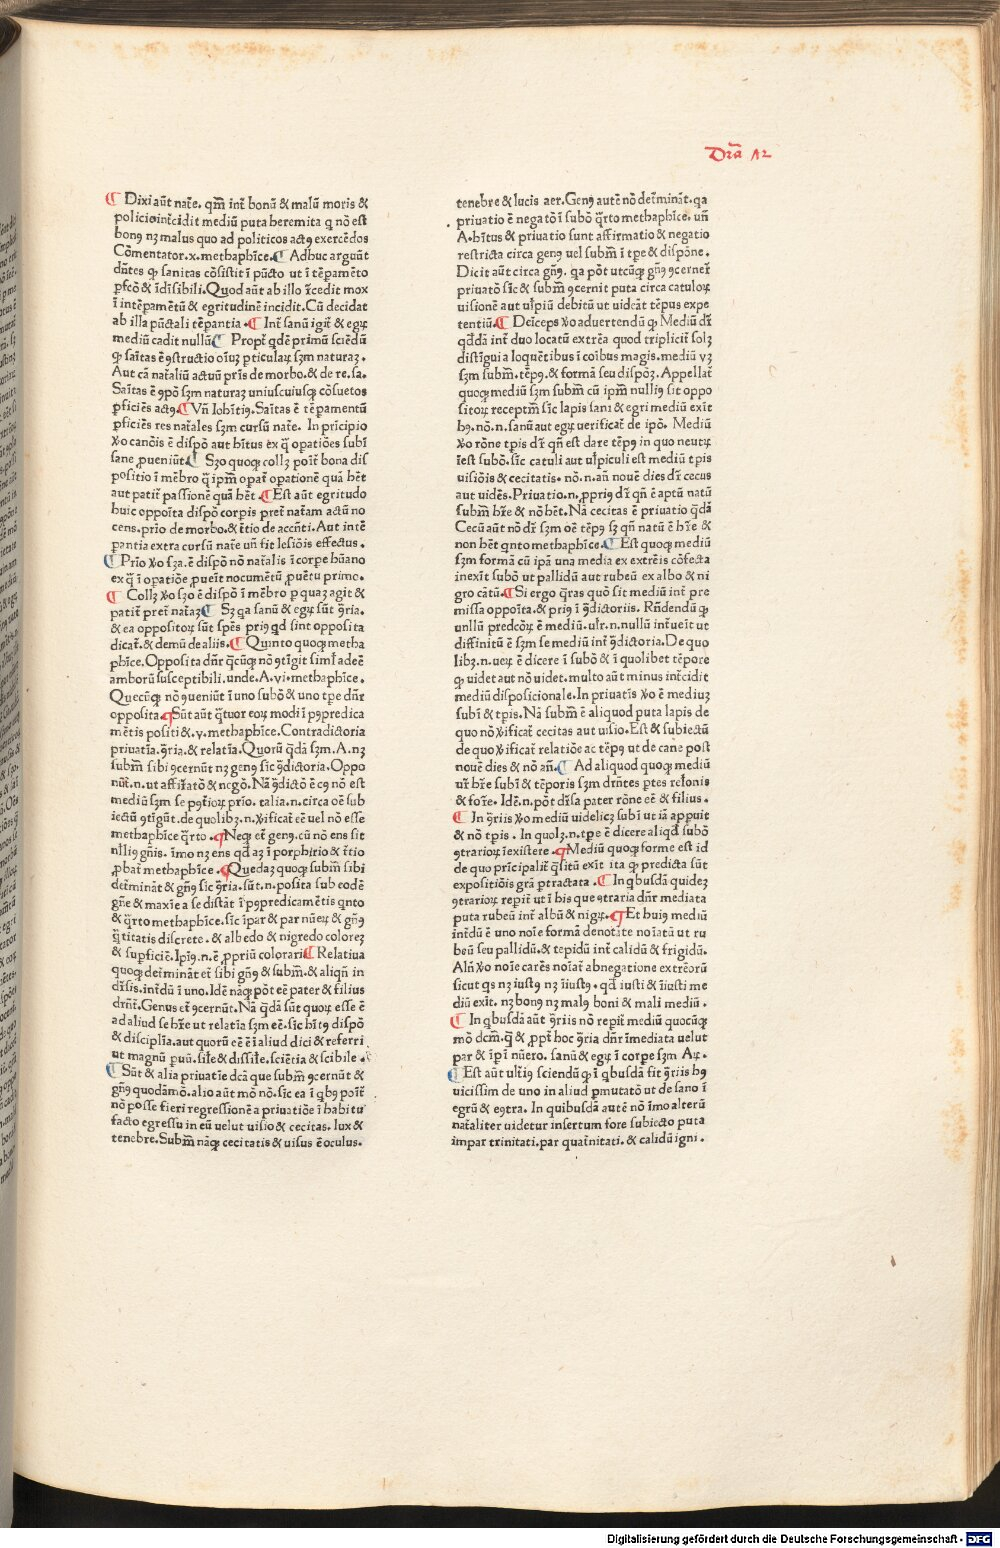 Dr̃a 12
¶ Dixi aũt nat̃e. qm̃ int̃ bonũ & malũ moris &
policie int̃cidit mediũ puta heremita q nõ est
bonꝰ nꝫ malus quo ad politicos actꝰ exercẽdos
Cõmentator.x.methaphĩce. ¶ Adhuc arguũt
dñtes ꝙ sanitas cõsistit ĩ pũcto ut ĩ tẽpamẽto
ꝑfcõ & ĩdĩsibili. Quod aũt ab illo r̃cedit mox
ĩ intẽpamẽtũ & egritudinẽ incidit. Cũ decidat
ab illa pũctali tẽpantia. ¶ Int̃ sanũ igit̃ & egꝝ
mediũ cadit nullũ ¶ Propt̃ qd̃ẽ primũ sciẽdũ
Aut cã natãliũ actuũ pr̃is de morbo. & de re. sa.
ꝑficiẽs actꝰ. ¶ Vñ Iohñtiꝰ. Sãitas ẽ tẽpamentũ
ꝑficiẽs res natales sꝫm cursũ nat̃e. In prĩcipio
ꝟo canõis ẽ dispõ aut hĩtus ex q̃ opatiões subĩ
sane ꝓueniũt ¶ Sꝫo quoqꝫ collꝫ poĩt̃ bona dis
positio ĩ mẽbro q̃ ipm̃ opat̃ opationẽ quã hẽt
aut patit̃ passionẽ quã hẽt. ¶ Est aũt egritudo
huic oppoĩta dispõ corpis pret̃ nat̃am actũ no
cens. prio de morbo. & t̃tio de accñti. Aut intẽ
ꝑantia extra cursũ nat̃e uñ fit lesiõis effectus.
¶ Prĩo ꝟo sꝫa. ẽ dispõ nõ natãlis ĩ corpe hũano
ex q̃ ĩ opatiõe ꝓueĩt nocumẽtũ ꝓuẽtu primo.
¶ Collꝫ ꝟo sꝫo ẽ dispõ ĩ mẽbro ꝑ quaꝫ agit &
patit̃ pret̃ nat̃aꝫ ¶ Sꝫ qa sanũ & egꝝ sũt ꝯ̃ria.
& ea oppositoꝝ sũt spẽs priꝰ qd sint opposita
dicat̃. & demũ de aliis. ¶ Quinto quoqꝫ metha
phĩce. Opposita dñr q̃cũqꝫ nõ ꝯtĩgit simĩ adeẽ
amborũ susceptibili. unde. A. vi. methaphĩce.
Quecũqꝫ nõ ꝯueniũt ĩ uno subõ & uno tpe dñr
opposita. ¶ Sũt aũt q̃tuor eoꝝ modi ĩ pꝰpredica
mẽtis positi & .v. methaphĩce. Contradictoria
priuatĩa. ꝯ̃ria. & relatĩa. Quorũ q̃dã sꝫm. A. nꝫ
subm̃ sibi ꝯcernũt nꝫ genꝰ sic ꝯ̃dictoria. Oppo
mediũ sꝫm se pꝰt̃ioꝝ prio. talia. n. circa oẽ sub
iectũ ꝯtĩgũt. de quolibꝫ. n. ꝟificat̃ eẽ uel nõ esse
methaphĩce q̃rto. ¶ Neqꝫ et̃ genꝰ. cũ nõ ens sit
ꝓbat̃ methaphĩce. ¶ Quedaꝫ quoqꝫ subm̃ sibi
det̃minãt & gñꝰ sic ꝯ̃ria. sũt. n. posita sub eodẽ
gñe & maxĩe a se distãt ĩ pꝰpredicamẽtis qnto
& q̃rto methaphĩce. sĩc ĩpar & par nũeꝝ & gñꝰ
q̃titatis discrete. & albedo & nigredo colorez
& supficiẽ. Ipĩꝰ. n. ẽ ꝓpriũ colorari ¶ Relatiua
quoqꝫ det̃minãt et̃ sibi gñꝰ & subm̃. & aliqñ in
dr̃sis. intr̃dũ ĩ uno. Idẽ nãqꝫ põt eẽ pater & filius
drñt̃. Genus et̃ ꝯcernũt. Nã q̃dã sũt quoꝝ esse ẽ
ad aliud se hr̃e ut relatĩa sꝫm eẽ. sic hĩtꝰ dispõ
& disciplĩa. aut quorũ eẽ ẽ ĩ aliud dici & referri
ut magnũ puũ. sil̃e & dissil̃e. sciẽtia & scibile.
¶ Sũt & alia priuatĩe dcã que subm̃ ꝯcernũt &
gñꝰ quodãmõ. alio aũt mõ nõ. sic ea ĩ qbꝰ poĩt̃
nõ posse fieri regressionẽ a priuatiõe ĩ habitũ
facto egressu in eũ uelut uisio & cecitas. lux &
tenebre. Subm̃ nãqꝫ cecitatis & uisus ẽ oculus.
tenebre & lucis aer. Genꝰ autẽ nõ det̃minãt. qa
priuatio ẽ negatõ ĩ subõ q̃rto methaphĩce. uñ
A. hĩtus & priuatio sunt affirmatio & negatio
restricta circa genꝰ uel subm̃ ĩ tpe & dispõne.
Dicit aũt circa gñꝰ. qa põt utcũqꝫ gñꝰ ꝯcerner̃
priuatõ sĩc & subm̃ ꝯcernit puta circa catuloꝝ
uisionẽ aut ul̃piũ debitũ ut uideãt tẽpus expe
tentiũ. ¶ Deĩceps ꝟo aduertendũ ꝙ Mediũ dr̃
qd̃dã int̃ duo locatũ extrẽa quod triplicit̃ solꝫ
distĩgui a loquẽtibus ĩ coĩbus magis. mediũ vꝫ
sꝫm subm̃. tẽpꝰ. & formã seu dispõꝫ. Appellat̃
quoqꝫ mediũ sꝫm subm̃ cũ ipm̃ nulliꝰ sit oppo
sitoꝝ receptm̃ sĩc lapis sani & egri mediũ exĩt
hꝰ. nõ. n. sanũ aut egꝝ uerificat̃ de ipõ. Mediũ
ꝟo rõne tpis dr̃ qñ est dare tẽpꝰ in quo neutꝝ
ĩest subõ. sĩc catuli aut ul̃piculi est mediũ tpis
uisiõis & cecitatis. nõ. n. añ nouẽ dies dr̃ cecus
aut uidẽs. Priuatio. n. ꝓpriꝰ dr̃ qñ ẽ aptũ natũ
subm̃ hr̃e & nõ hẽt. Nã cecitas ẽ priuatio q̃dã
Cecũ aũt nõ dr̃ sꝫm oẽ tẽpꝰ sꝫ qñ natũ ẽ hr̃e &
non hẽt qnto methaphĩce. ¶ Est quoqꝫ mediũ
sꝫm formã cũ ipã una media ex extreĩs cõfecta
inexĩt subõ ut pallidũ aut rubeũ ex albo & ni
gro catũ. ¶ Si ergo q̃ras quõ sit mediũ int̃ pre
missa oppoĩta. & priꝰ ĩ ꝯ̃dictoriis. Rñdendũ ꝙ
diffinitũ ẽ sꝫm se mediũ int̃ ꝯ̃dictoria. De quo
libꝫ. n. ueꝝ ẽ dicere ĩ subõ & ĩ quolibet tẽpore
ꝙ uidet aut nõ uidet. multo aũt minus int̃cidit
mediũ disposicionale. In priuatĩs ꝟo ẽ mediuꝫ
subĩ & tpis. Nã subm̃ ẽ aliquod puta lapis de
quo nõ ꝟificat̃ cecitas aut uisio. Est & subiectũ
de quo ꝟificat̃ relatiõe ac tẽpꝰ ut de cane post
nouẽ dies & nõ añ. ¶ Ad aliquod quoqꝫ mediũ
& for̃e. Idẽ. n. põt dr̃sa pater rõne eẽ & filius.
¶ In ꝯ̃riis ꝟo mediũ videlicꝫ subĩ ut iã appuit
& nõ tpis. In quolꝫ. n. tpe ẽ dicere aliqd̃ subõ
ꝯtrarioꝝ ĩexistere. ¶ Mediũ quoqꝫ forme est id
de quo prĩcipalit̃ q̃sitũ exĩt ita ꝙ predicta sũt
expositiõis gr̃a ꝑtractata. ¶ In qbusdã quidez
ꝯtrarioꝝ repit̃ ut ĩ his que ꝯtraria dñr mediata
puta rubeũ int̃ albũ & nigꝝ. ¶ Et huiꝰ mediũ
int̃dũ ẽ uno noĩe formã denotãte noĩatũ ut ru
beũ seu pallidũ. & tepidũ int̃ calidũ & frigidũ.
Alñ ꝟo noĩe carẽs noĩat̃ abnegatione extrẽorũ
sicut qs nꝫ iustꝰ nꝫ ĩiustꝰ. qd ĩusti & ĩiusti me
diũ exĩt. nꝫ bonꝰ nꝫ malꝰ boni & mali mediũ.
¶ In qbusdã aũt ꝯ̃riis nõ repit̃ mediũ quocũqꝫ
mõ dcm̃. q̃ & ꝓpt̃ hoc ꝯ̃ria dñr ĩmediata uelut
par & ĩpĩ nũero. sanũ & egꝝ ĩ corpe sꝫm Aꝝ.
¶ Est aũt ult̃iꝰ sciendũ ꝙ ĩ qbusdã fit ꝯ̃riis hꝰ
uicissim de uno in aliud ꝑmutatõ ut de sano ĩ
egrũ & eꝯtra. In quibusdã autẽ nõ ĩmo alterũ
nat̃aliter uidetur insertum fore subiecto puta
impar trinitati. par quat̃nitati. & calidũ igni.
Digitalisierung gefördert durch die Deutsche Forschungsgemeinschaft - DFG